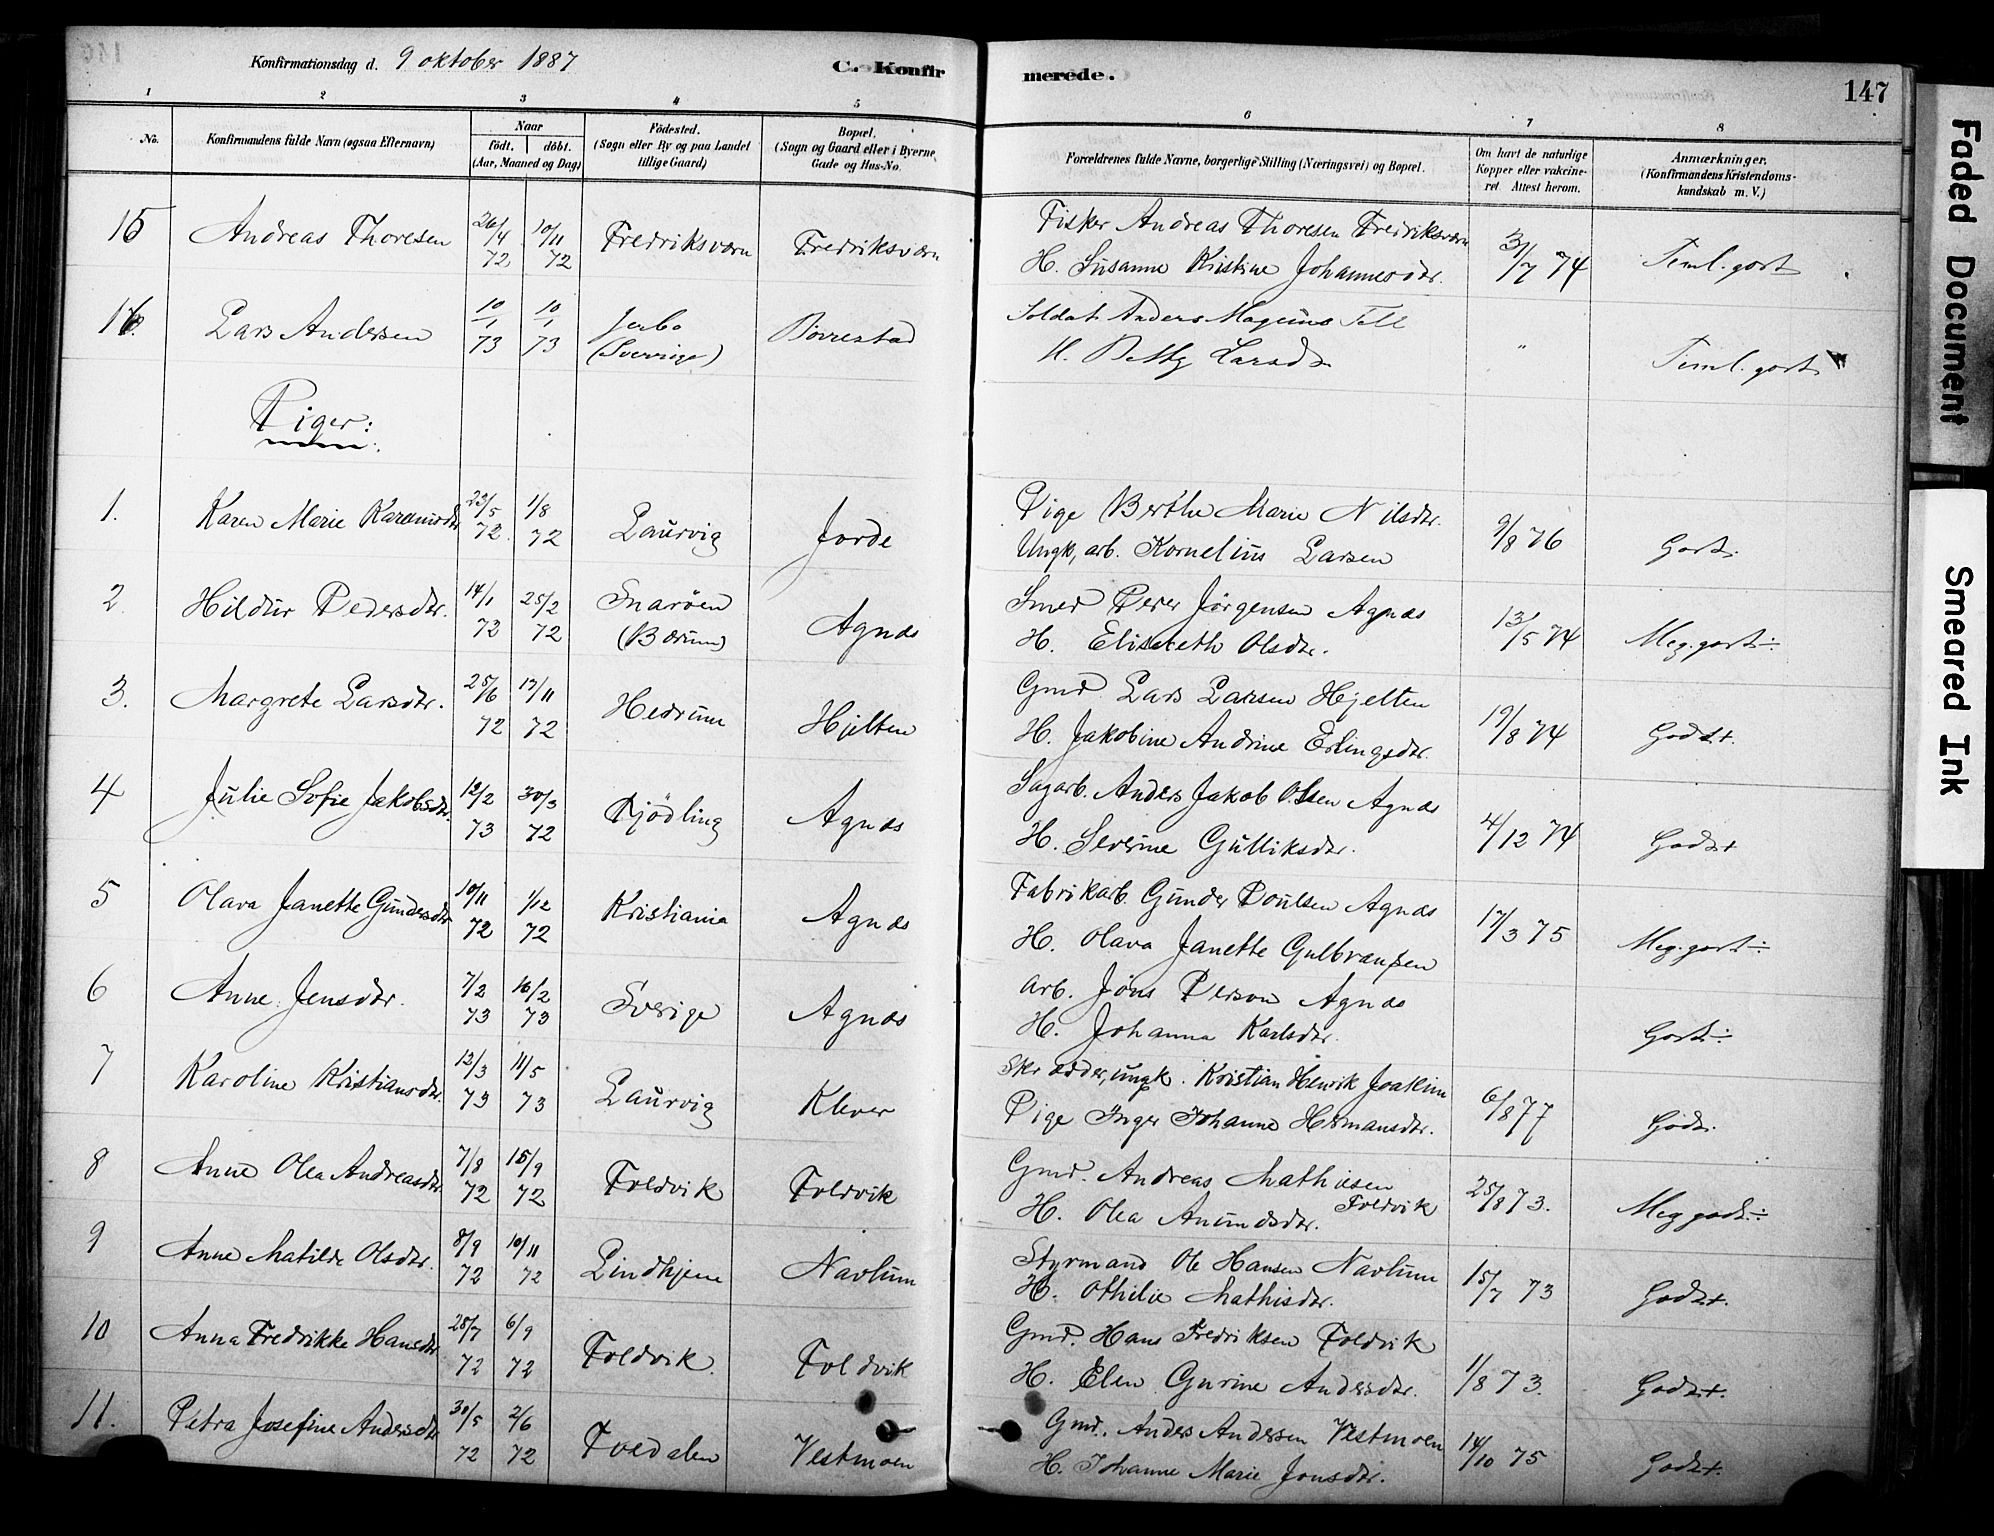 Konfirmationsdag d. 9 oktober 1887 C. Konfirmerede. 147
1 2 3 4 5 6 7 8
No. Konfirmandens fulde Navn (ogsaa Efternavn) Naar født. døbt. (Aar, Maaned og Dag) Fødested. (Sogn eller By og paa Landet tillige Gaard) Bopæl. (Sogn og Gaard eller i Byerne Gade og Hus-No. Forældrenes fulde Navne, borgerlige Stilling (Næringsvei) og Bopæl. Om havt de naturlige Kopper eller vakcineret Attest herom. Anmærkninger. (Konfirmandens Kristendomskundskab m. V.)
15 Andreas Thoresen 26/4 72 10/11 72 Fredriksværn Fredriksværn Fisker Andreas Thoresen Fredriksværn
H. Susanne Kristine Johannesdtr. 3/7 74 Teml. godt
16. Lars Andersen 10/1 73 10/1 73 Jerbo (Sverrige) Borrestad Soldat Anders Magnus Fell
H. Betty Larsdtr " Teml. godt
Piger:
1. Karen Marie Kareliusdtr 23/5 72. 1/8 72 Laurvig Jorde Pige Berthe Marie Nilsdtr.
Ungk, arb. Kornelius Larsen 9/8 76 Godt.
2. Hildur Pedersdtr. 14/1 72 25/2 72 Snarøen (Bærum) Agnæs Smed Peder Jørgensen Agnæs
H. Elisabeth Olsdtr. 13/5 74 Meg. godt ÷
3. Margrete Larsdtr. 25/6 72 17/11 72 Hedrum Hjelten Gmd Lars Larsen Hjelten
H. Jakobine Andrine Erlingsdtr. 19/8 74 Godt+.
4 Julie Sofie Jakobsdtr. 12/2 73 30/3 72 Kjødling Agnæs Sagarb. Anders Jakob Olsen Agnæs
H. Severine Gulliksdtr. 4/12 74 Godt+
5 Olava Janette Gundersdtr 10/11 72 1/12 72 Kristiania Agnæs Fabrikarb. Gunder Poulsen Agnæs
H. Olava Janette Gulbransen 17/3 75 Meg. godt ÷
6 Anne Jensdtr. 7/2 73 16/2 73 Sverige Agnæs Arb. Jöns Person Agnæs
H. Johanna Karlsdtr. Godt ÷
7 Karoline Kristiansdtr. 13/3 73 11/5 73 Laurvig Klever Skrædder, ungk. Kristian Henrik Joakim
Pige Inger Johanne Hermansdtr. 6/8 77 Godt.
8 Anne Olea Andreasdtr 7/8 72 15/9 72 Foldvik Foldvik Gmd. Andreas Mathisen
Foldvik
H. Olea Anundsdtr. 25/8 73. Meg godt ÷
9 Anne Matilde Olsdtr. 8/9 72 10/11 72 Lindhjem Navlum Styrmand Ole Hansen Navlum
H. Othilie Mathisdtr. 15/7 73 Godt+.
10 Anna Fredrikke Hansdtr 28/7 72 6/9 72 Foldvik. Foldvik Gmd. Hans Fredriksen Foldvik
H. Elen Gurine Andersdtr. 1/8 73. Godt+.
11. Petra Josefine Andersdtr 30/5 72 2/6 72 Tvedalen Vestmoen Gmd. Anders Andersen Vestmoen
H. Johanne Marie Jonsdtr. 14/10 75 Godt+.
Faded Document
Smeared Ink